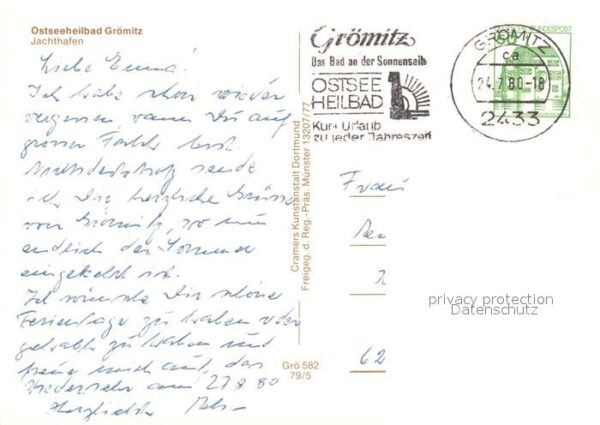 Ostseeheilbad Grömitz
Jachthafen
Liebe Emma!
Ich habe schon wieder
vergessen wann Du auf
grosser Fahrt bist.
sende
ich Dir herzliche Grüsse
von Grömitz, wo nun
endlich der Sommer
eingekehrt ist.
Ich wünsche Dir schöne
Ferientage zu haben oder
gehabt zu haben und
freue mich auf das
Wiedersehn am 27.8.80
Herzlichst
Cramers Kunstanstalt Dortmund
Freigeg. d. Reg.-Präs. Münster 13207/77
Grö 582
79/5
Grömitz
Das Bad an der Sonnenseite
OSTSEE
HEILBAD
Kur + Urlaub
zu jeder Jahreszeit
GRÖMITZ
ca
24.7.80-18
2433
BUNDESPOST
Frau
62
privacy protection
Datenschutz